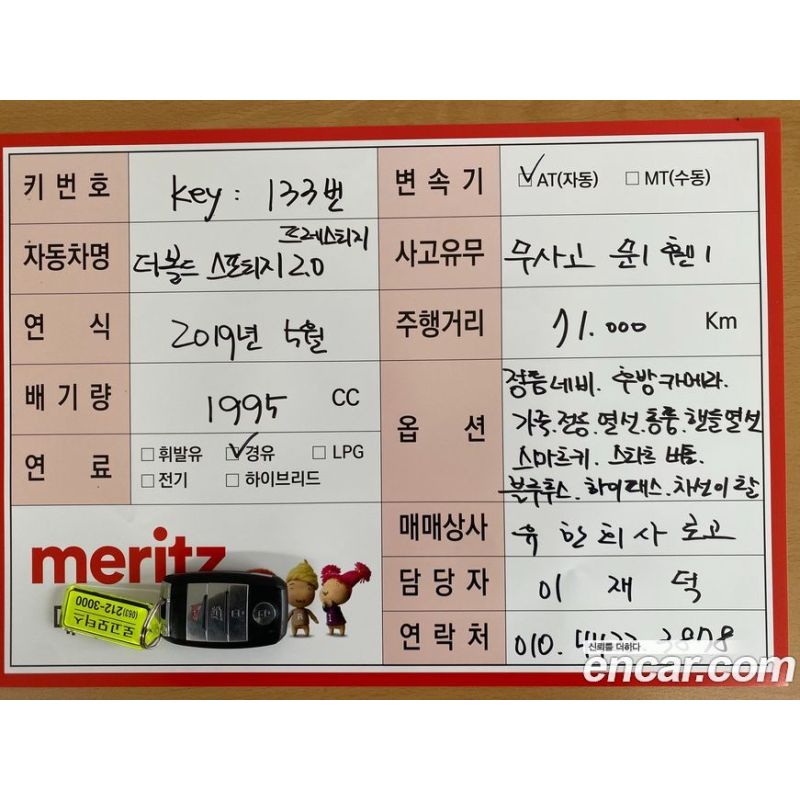 키 번 호
key : 133번
변 속 기
AT(자동) MT(수동)
자동차명
프레스티지
더볼드 스포티지 2.0
사고유무
무사고
연 식
2019년 5월
주행거리
71.000 Km
배 기 량
1995 CC
옵 션
정품네비. 후방카메라.
가죽.전동.열선.통풍.핸들열선
스마트키. 스타트 버튼.
블루투스. 하이패스. 차선이탈
연 료
휘발유 경유 LPG
전기 하이브리드
매매상사
유한회사 로고
담 당 자
이 재 덕
연 락 처
010.
meritz
로고모터스
(063)212-3000
신뢰를 더하다
encar.com